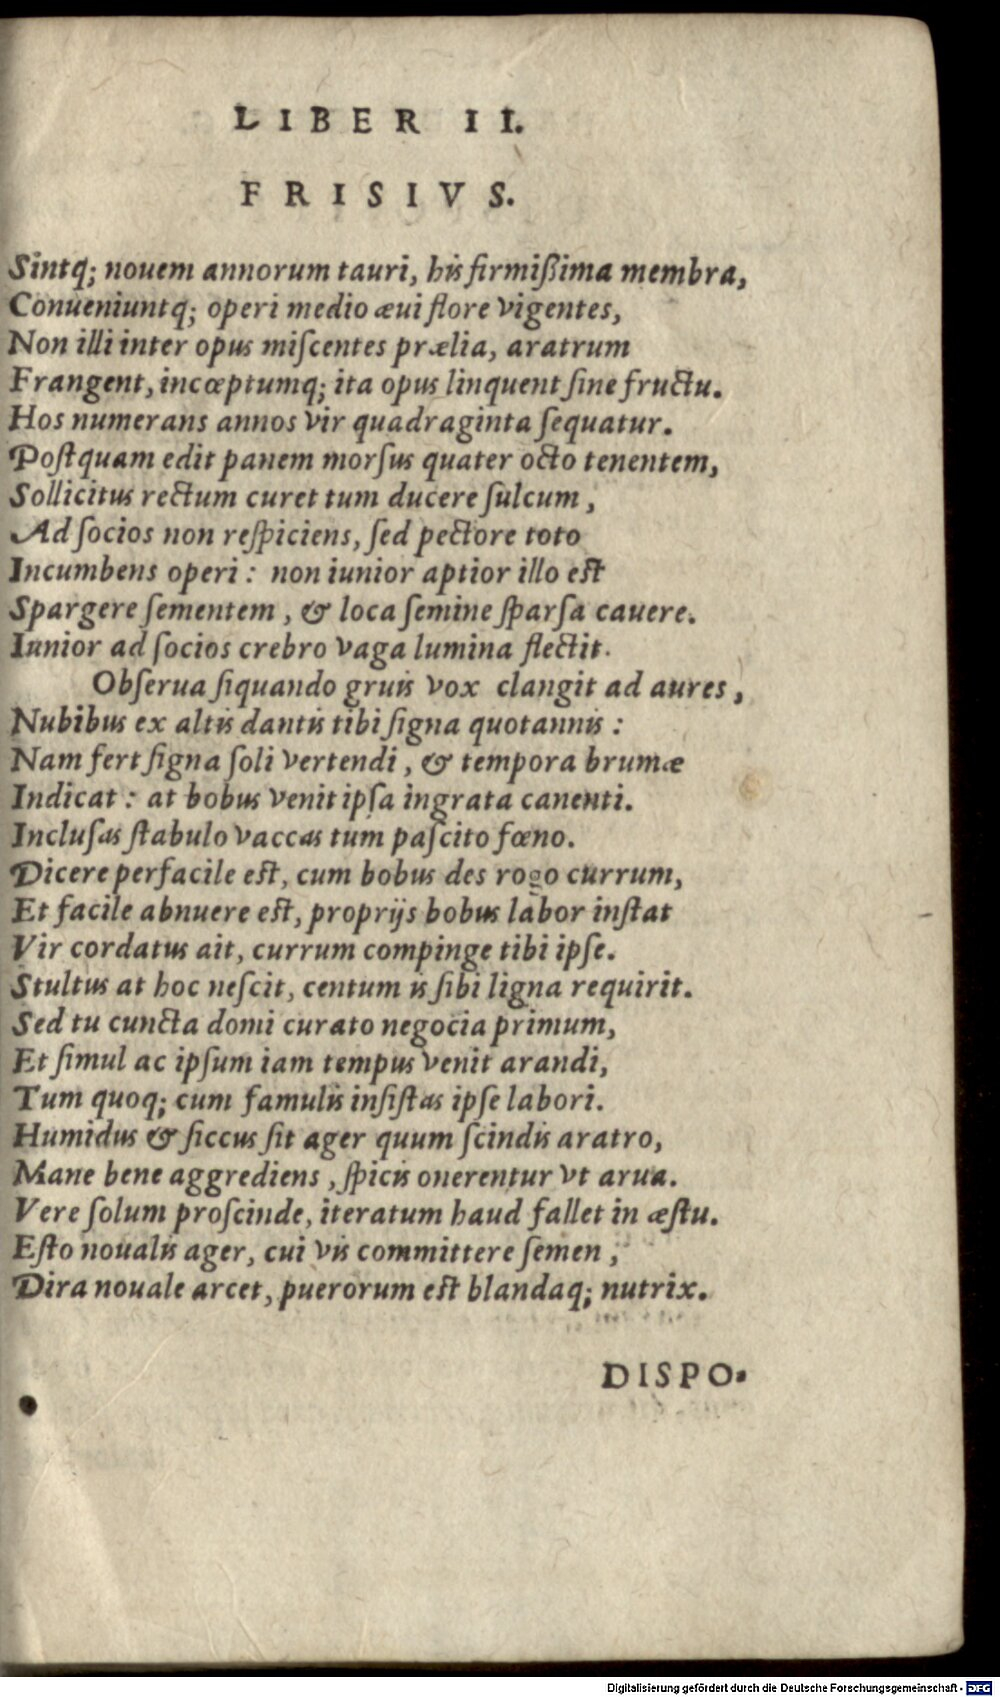 LIBER II.
FRISIVS.
Sintq; nouem annorum tauri, his firmißima membra,
Conueniuntq; operi medio æui flore vigentes,
Non illi inter opus miſcentes prælia, aratrum
Frangent, incœptumq; ita opus linquent ſine fructu.
Hos numerans annos vir quadraginta ſequatur.
Poſtquam edit panem morſus quater octo tenentem,
Sollicitus rectum curet tum ducere ſulcum,
Ad ſocios non reſpiciens, ſed pectore toto
Incumbens operi: non iunior aptior illo eſt
Spargere ſementem, & loca ſemine ſparſa cauere.
Iunior ad ſocios crebro vaga lumina flectit.
Obſerua ſiquando gruis vox clangit ad aures,
Nubibus ex altis dantis tibi ſigna quotannis:
Nam fert ſigna ſoli vertendi, & tempora brumæ
Indicat: at bobus venit ipſa ingrata canenti.
Incluſas ſtabulo vaccas tum paſcito fœno.
Dicere perfacile eſt, cum bobus des rogo currum,
Et facile abnuere eſt, proprijs bobus labor inſtat
Vir cordatus ait, currum compinge tibi ipſe.
Stultus at hoc neſcit, centum is ſibi ligna requirit.
Sed tu cuncta domi curato negocia primum,
Et ſimul ac ipſum iam tempus venit arandi,
Tum quoq; cum famulis inſiſtas ipſe labori.
Humidus & ſiccus ſit ager quum ſcindis aratro,
Mane bene aggrediens, ſpicis onerentur vt arua.
Vere ſolum proſcinde, iteratum haud fallet in æſtu.
Eſto noualis ager, cui vis committere ſemen,
Dira nouale arcet, puerorum eſt blandaq; nutrix.
DISPO-
Digitalisierung gefördert durch die Deutsche Forschungsgemeinschaft - DFG